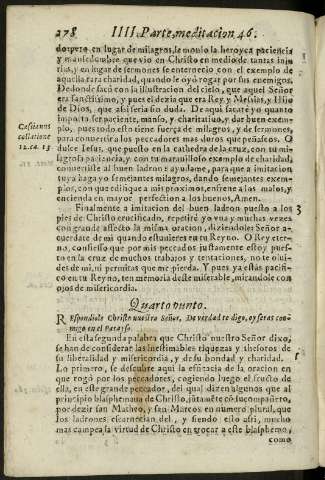 278 IIII. Parte, meditacion 46.
do: pero en lugar de milagros, le mouio la heroyca paciencia
y mansedumbre que vio en Christo en medio de tantas inju
rias, y en lugar de sermones se enternecio con el exemplo de
aquella rara charidad, quando le oyó rogar por sus enemigos.
De donde sacó con la illustracion del cielo, que aquel Señor
era santissimo, y pues el dezia que era Rey, y Messias, y Hijo
de Dios, que assi seria sin duda. De aqui sacaré yo quanto
importa ser paciente, manso, y charitatiuo, y dar buen exem-
plo, pues todo esto tiene fuerça de milagros, y de sermones,
para conuertir a los peccadores mas duros que peñascos. O
dulce Iesus, que puesto en la cathedra de la cruz, con tu mi-
lagrosa paciencia, y con tu marauilloso exemplo de charidad,
conuertiste al buen ladron: ayudame, para que a imitacion
tuya haga yo semejantes milagros, dando semejantes exem-
plos, con que edifique a mis proximos, enfrene a los malos, y
encienda en mayor perfection a los buenos, Amen.
Cassianus
collatione
12. ca. 13.
Finalmente a imitacion del buen ladron puesto a los
pies de Christo crucificado, repetiré yo vna y muchas veces
con grande affecto la misma oracion, diziendole: Señor a-
cuerdate de mi quando estuuieres en tu Reyno. O Rey eter-
no, confiesso que por mis peccados justamente estoy pues-
to en la cruz de muchos trabajos y tentaciones, no te olui-
des de mi, ni permitas que me pierda. Y pues ya estás pacifi-
co en tu Reyno, ten memoria deste miserable, mirandole con
ojos de misericordia.
3
Quarto punto.
REspondiole Christo nuestro Señor, De verdad te digo, oy seras con-
migo en el Parayso.
En esta segunda palabra que Christo nuestro Señor dixo,
se han de considerar las inestimables riquezas y thesoros de
su liberalidad y misericordia, y de su bondad y charidad.
Lo primero, se descubre aqui la efficacia de la oracion en
que rogó por los peccadores, cogiendo luego el fructo de
ella, en este grande peccador, del qual dizen algunos que al
principio blasphemaua de Christo, jũtamẽte cõ su compañero,
por dezir san Matheo, y san Marcos en numero plural, que
los ladrones escarnecian del, y siendo esto assi, mucho
mas campea la virtud de Christo en trocar a este blasphemo,
como